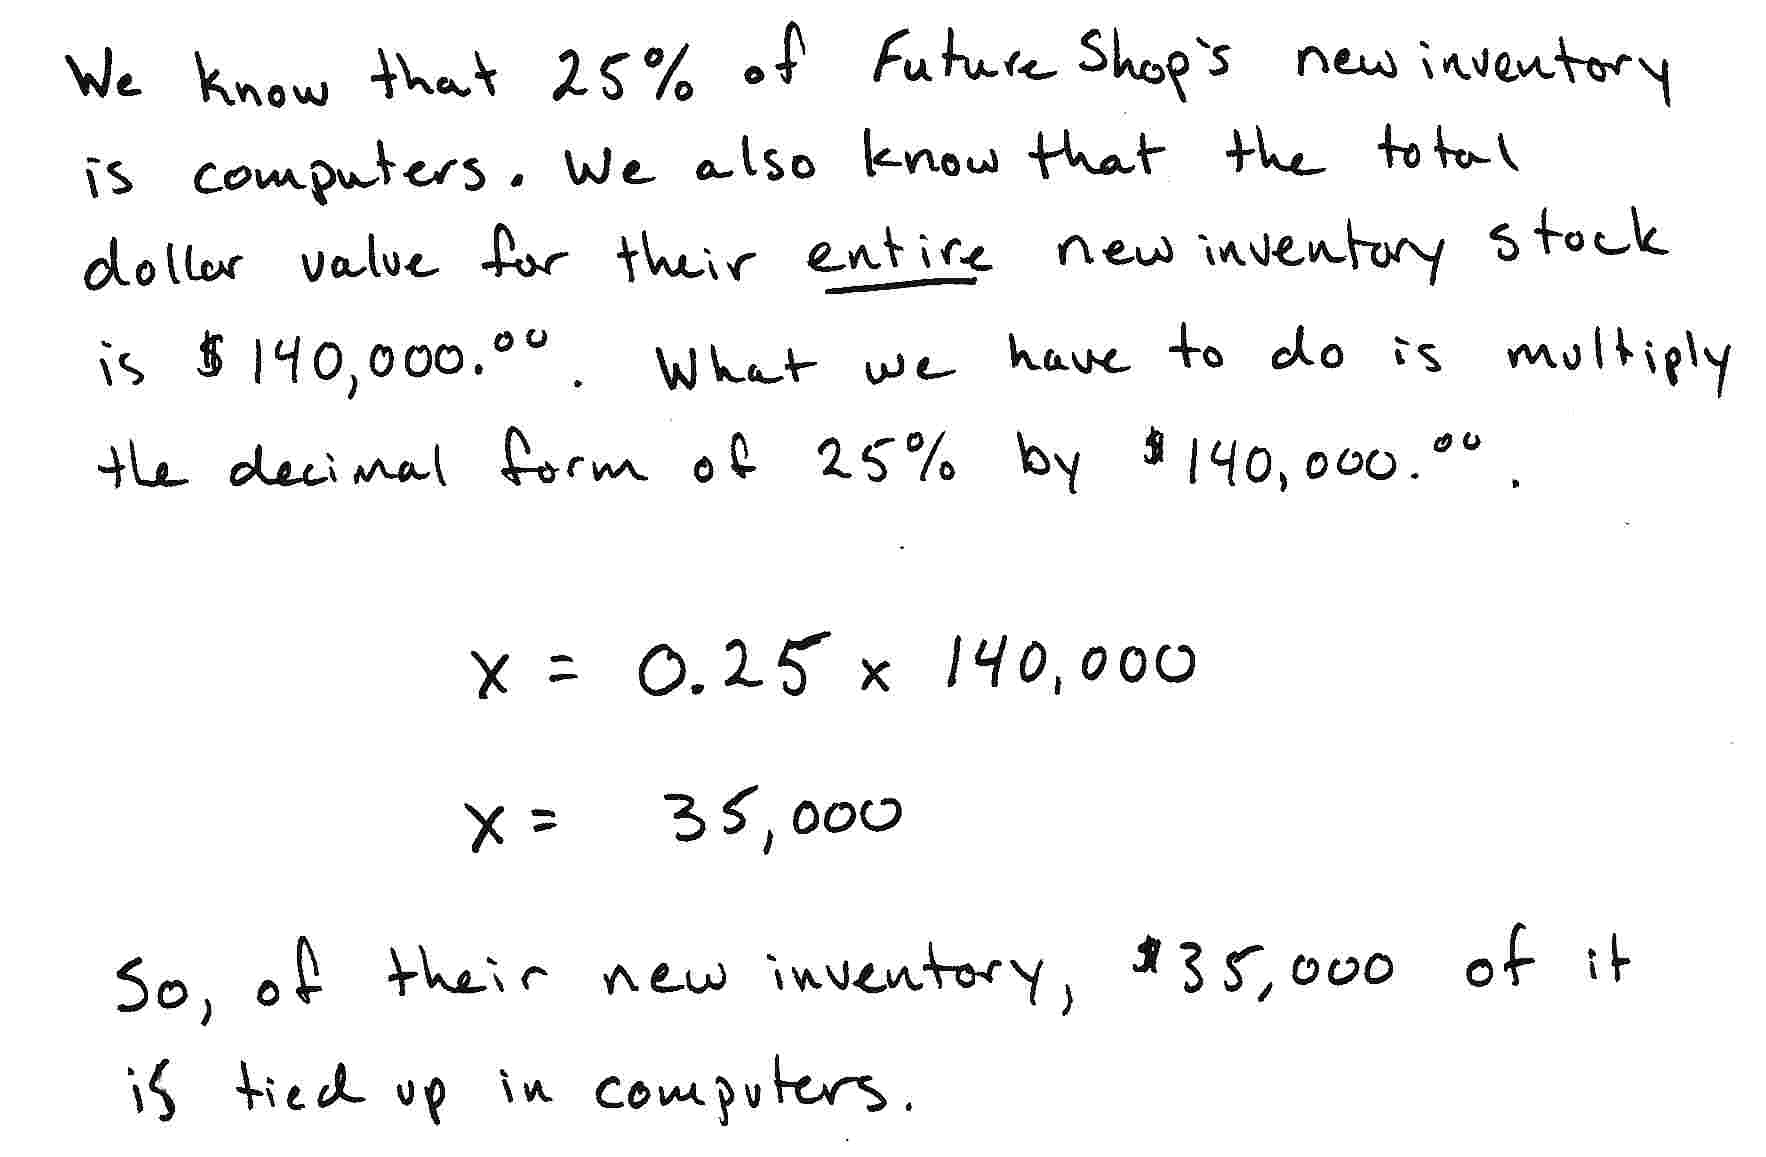 We know that 25% of Future Shop's new inventory
is computers. We also know that the total
dollar value for their entire new inventory stock
is $140,000.00. What we have to do is multiply
the decimal form of 25% by $140,000.00.
x = 0.25 x 140,000
x = 35,000
So, of their new inventory, $35,000 of it
is tied up in computers.